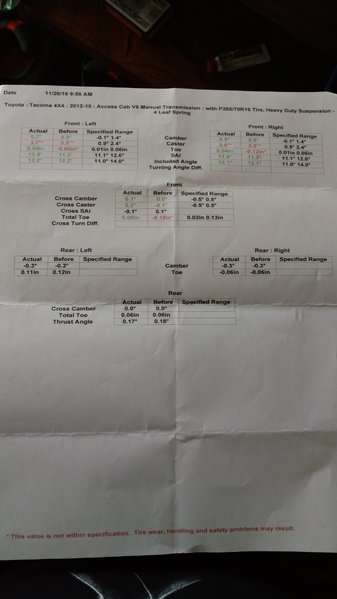 Date 11/26/16 9:56 AM
Toyota : Tacoma 4X4 : 2012-15 : Access Cab V6 Manual Transmission : with P265/70R16 Tire, Heavy Duty Suspension -
4 Leaf Spring
Front : Left Front : Right
Actual Before Specified Range Actual Before Specified Range
0.7° -0.1° 1.4° Camber -0.1° 1.4°
3.7°* 0.9° 2.4° Caster 0.9° 2.4°
0.04in -0.06in* 0.01in 0.06in Toe 0.04in -0.12in* 0.01in 0.06in
11.5° 11.1° 12.6° SAI 11.1° 12.6°
12.2° 12.2° 11.0° 14.0° Included Angle 12.1° 12.1° 11.0° 14.0°
Turning Angle Diff.
Front
Actual Before Specified Range
Cross Camber 0.1° 0.0° -0.5° 0.5°
Cross Caster 0.2° -0.1° -0.5° 0.5°
Cross SAI -0.1° 0.1°
Total Toe 0.08in -0.18in* 0.02in 0.13in
Cross Turn Diff.
Rear : Left Rear : Right
Actual Before Specified Range Actual Before Specified Range
-0.3° -0.3° Camber -0.3° -0.3°
0.11in 0.12in Toe -0.06in -0.06in
Rear
Actual Before Specified Range
Cross Camber 0.0° 0.0°
Total Toe 0.06in 0.06in
Thrust Angle 0.17° 0.18°
* This value is not within specification. Tire wear, handling and safety problems may result.